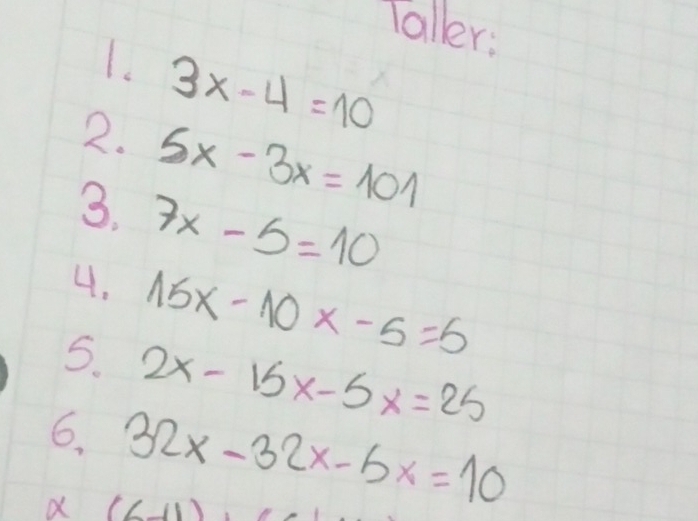 Taller:
1. 3x - 4 = 10
2. 5x - 3x = 101
3. 7x - 5 = 10
4. 15x - 10x - 5 = 5
5. 2x - 15x - 5x = 25
6. 32x - 32x - 5x = 10